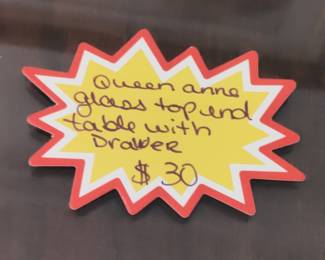 Queen anne
glass top end
table with
Drawer
$ 30